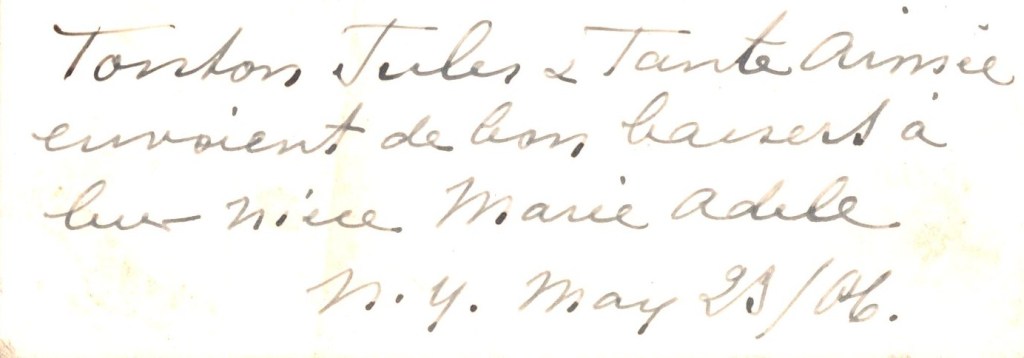 Tonton Jules & Tante Aimée
envoient de bon baisers à
leur nièce Marie Adele
N.Y. May 23/06.